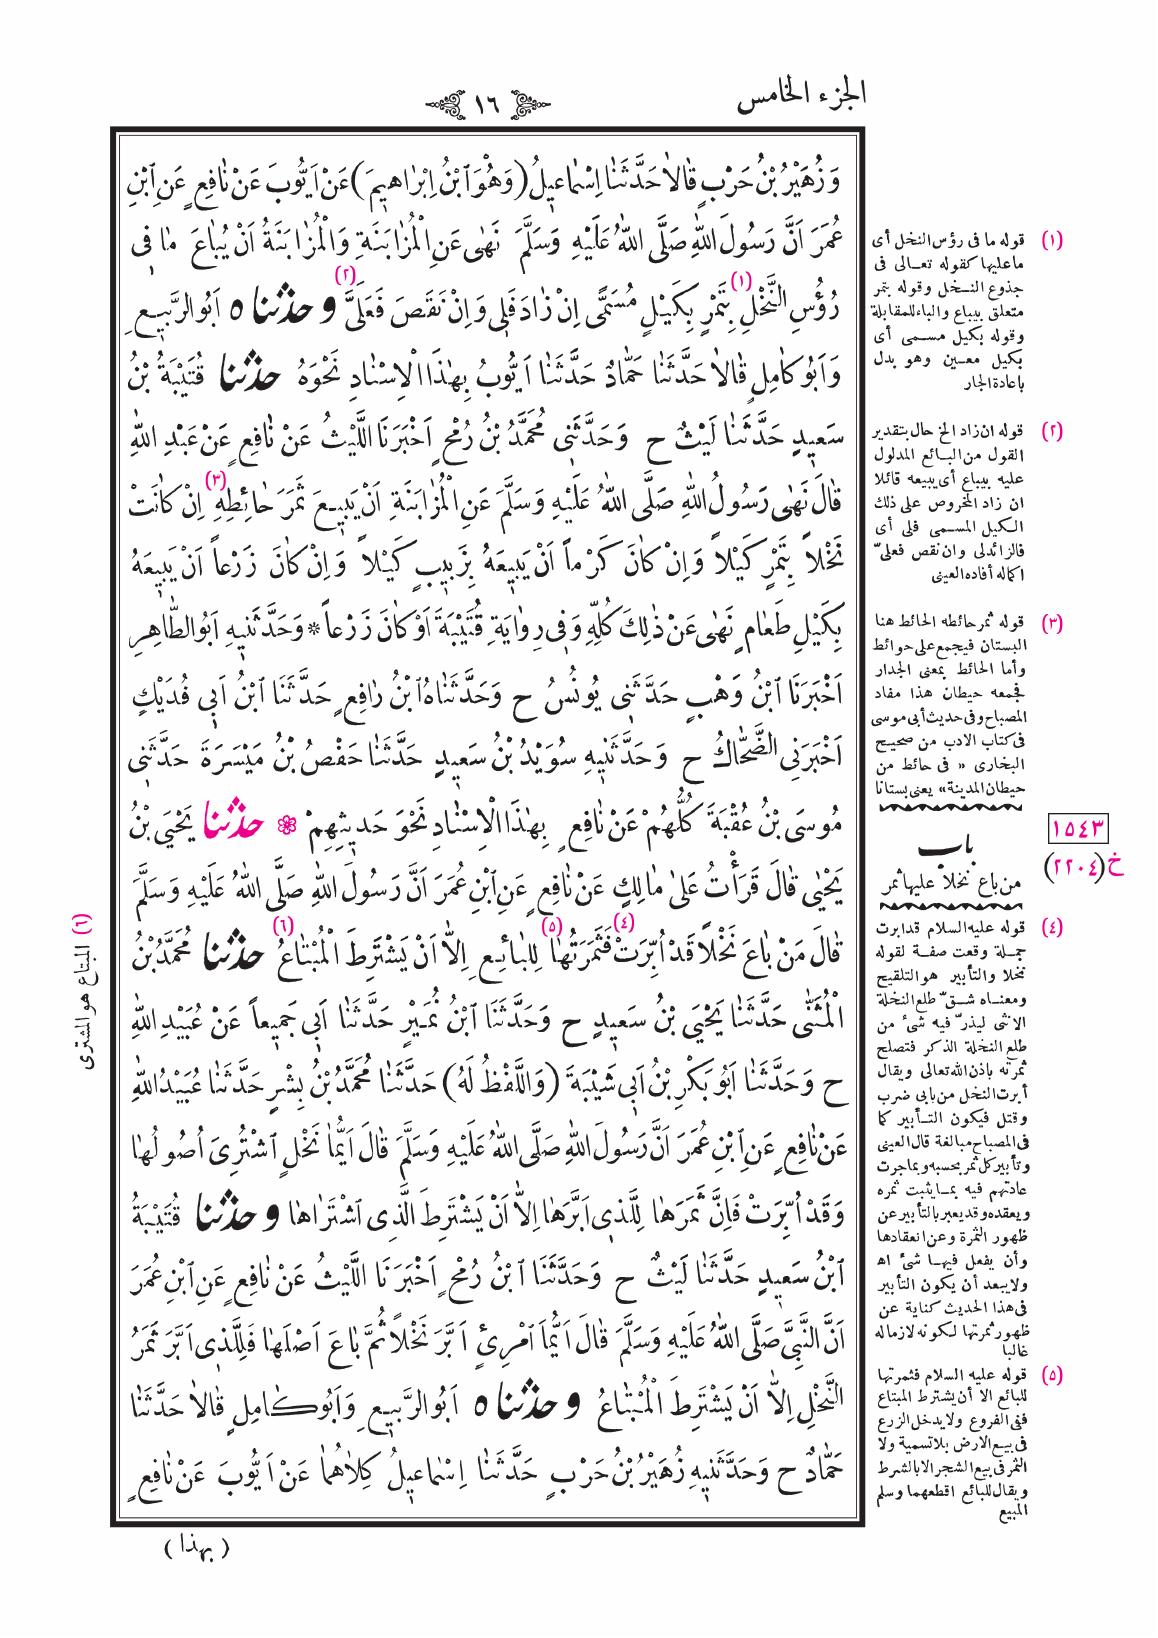 الجزء الخامس
١٦
وَزُهَيْرُ بْنُ حَرْبٍ قَالَا حَدَّثَنَا اِسْمَاعِيلُ (وَهُوَ ٱبْنُ اِبْرَاهِيمَ) عَنْ اَيُّوبَ عَنْ نَافِعٍ عَنِ ٱبْنِ
عُمَرَ اَنَّ رَسُولَ اللهِ صَلَّى اللهُ عَلَيْهِ وَسَلَّمَ نَهٰى عَنِ الْمُزَابَنَةِ وَالْمُزَابَنَةُ اَنْ يُبَاعَ مَا فِى
رُؤُسِ النَّخْلِ (١) بِتَمْرٍ بِكَيْلٍ مُسَمًّى اِنْ زَادَ فَلِى وَاِنْ نَقَصَ فَعَلَىَّ (٢) و حدثنا ه اَبُو الرَّبِيعِ
وَاَبُو كَامِلٍ قَالَا حَدَّثَنَا حَمَّادٌ حَدَّثَنَا اَيُّوبُ بِهٰذَا الْاِسْنَادِ نَحْوَهُ حدثنا قُتَيْبَةُ بْنُ
سَعِيدٍ حَدَّثَنَا لَيْثٌ ح وَحَدَّثَنِى مُحَمَّدُ بْنُ رُمْحٍ اَخْبَرَنَا اللَّيْثُ عَنْ نَافِعٍ عَنْ عَبْدِ اللهِ
قَالَ نَهٰى رَسُولُ اللهِ صَلَّى اللهُ عَلَيْهِ وَسَلَّمَ عَنِ الْمُزَابَنَةِ اَنْ يَبِيعَ ثَمَرَ حَائِطِهِ (٣) اِنْ كَانَتْ
نَخْلاً بِتَمْرٍ كَيْلاً وَاِنْ كَانَ كَرْماً اَنْ يَبِيعَهُ بِزَبِيبٍ كَيْلاً وَاِنْ كَانَ زَرْعاً اَنْ يَبِيعَهُ
بِكَيْلِ طَعَامٍ نَهٰى عَنْ ذٰلِكَ كُلِّهِ وَفِى رِوَايَةِ قُتَيْبَةَ اَوْ كَانَ زَرْعاً * وَحَدَّثَنِيهِ اَبُو الطَّاهِرِ
اَخْبَرَنَا ٱبْنُ وَهْبٍ حَدَّثَنِى يُونُسُ ح وَحَدَّثَنَاهُ ٱبْنُ رَافِعٍ حَدَّثَنَا ٱبْنُ اَبِى فُدَيْكٍ
اَخْبَرَنِى الضَّحَّاكُ ح وَحَدَّثَنِيهِ سُوَيْدُ بْنُ سَعِيدٍ حَدَّثَنَا حَفْصُ بْنُ مَيْسَرَةَ حَدَّثَنِى
مُوسَى بْنُ عُقْبَةَ كُلُّهُمْ عَنْ نَافِعٍ بِهٰذَا الْاِسْنَادِ نَحْوَ حَدِيثِهِمْ حدثنا يَحْيَى بْنُ
يَحْيٰى قَالَ قَرَأْتُ عَلىٰ مَالِكٍ عَنْ نَافِعٍ عَنِ ٱبْنِ عُمَرَ اَنَّ رَسُولَ اللهِ صَلَّى اللهُ عَلَيْهِ وَسَلَّمَ
قَالَ مَنْ بَاعَ نَخْلاً قَدْ اُبِّرَتْ (٤) فَثَمَرَتُهَا (٥) لِلْبَائِعِ اِلاَّ اَنْ يَشْتَرِطَ الْمُبْتَاعُ (٦) حدثنا مُحَمَّدُ بْنُ
الْمُثَنّٰى حَدَّثَنَا يَحْيَى بْنُ سَعِيدٍ ح وَحَدَّثَنَا ٱبْنُ نُمَيْرٍ حَدَّثَنَا اَبِى جَمِيعاً عَنْ عُبَيْدِ اللهِ
ح وَحَدَّثَنَا اَبُو بَكْرِ بْنُ اَبِى شَيْبَةَ (وَاللَّفْظُ لَهُ) حَدَّثَنَا مُحَمَّدُ بْنُ بِشْرٍ حَدَّثَنَا عُبَيْدُ اللهِ
عَنْ نَافِعٍ عَنِ ٱبْنِ عُمَرَ اَنَّ رَسُولَ اللهِ صَلَّى اللهُ عَلَيْهِ وَسَلَّمَ قَالَ اَيُّمَا نَخْلٍ ٱشْتُرِىَ اُصُولُهَا
وَقَدْ اُبِّرَتْ فَاِنَّ ثَمَرَهَا لِلَّذِى اَبَّرَهَا اِلاَّ اَنْ يَشْتَرِطَ الَّذِى ٱشْتَرَاهَا و حدثنا قُتَيْبَةُ
ٱبْنُ سَعِيدٍ حَدَّثَنَا لَيْثٌ ح وَحَدَّثَنَا ٱبْنُ رُمْحٍ اَخْبَرَنَا اللَّيْثُ عَنْ نَافِعٍ عَنِ ٱبْنِ عُمَرَ
اَنَّ النَّبِىَّ صَلَّى اللهُ عَلَيْهِ وَسَلَّمَ قَالَ اَيُّمَا ٱمْرِئٍ اَبَّرَ نَخْلاً ثُمَّ بَاعَ اَصْلَهَا فَلِلَّذِى اَبَّرَ ثَمَرُ
النَّخْلِ اِلاَّ اَنْ يَشْتَرِطَ الْمُبْتَاعُ و حدثنا ه اَبُو الرَّبِيعِ وَاَبُو كَامِلٍ قَالَا حَدَّثَنَا
حَمَّادٌ ح وَحَدَّثَنِيهِ زُهَيْرُ بْنُ حَرْبٍ حَدَّثَنَا اِسْمَاعِيلُ كِلَاهُمَا عَنْ اَيُّوبَ عَنْ نَافِعٍ
(بهذا)
(١) قوله ما فى رؤس النخل أى
ما عليها كقوله تعالى فى
جذوع النخل وقوله بتمر
متعلق بيباع والباء للمقابلة
وقوله بكيل مسمى أى
بكيل معين وهو بدل
باعادة الجار
(٢) قوله ان زاد الخ حال بتقدير
القول من البائع المدلول
عليه بيباع أى يبيعه قائلا
ان زاد المخروص على ذلك
الكيل المسمى فلى أى
فالزائد لى وان نقص فعلىّ
اكماله أفاده العينى
(٣) قوله ثمر حائطه الحائط هنا
البستان فيجمع على حوائط
وأما الحائط بمعنى الجدار
فجمعه حيطان هذا مفاد
المصباح وفى حديث أبى موسى
فى كتاب الادب من صحيح
البخارى « فى حائط من
حيطان المدينة» يعنى بستانا
١٥٤٣
خ (٢٢٠٤)
باب
من باع نخلا عليها ثمر
(٤) قوله عليه السلام قد ابرت
جملة وقعت صفة لقوله
نخلا والتأبير هو التلقيح
ومعناه شقّ طلع النخلة
الانثى ليذرّ فيه شئ من
طلع النخلة الذكر فتصلح
ثمرته باذن الله تعالى ويقال
أبرت النخل من بابى ضرب
وقتل فيكون التأبير كما
فى المصباح مبالغة قال العينى
وتأبير كل ثمر بحسبه وبما جرت
عادتهم فيه بما يثبت ثمره
ويعقده وقد يعبر بالتأبير عن
ظهور الثمرة وعن انعقادها
وأن يفعل فيها شئ اه
ولا يبعد أن يكون التأبير
فى هذا الحديث كناية عن
ظهور ثمرتها لكونه لازما له
غالبا
(٥) قوله عليه السلام فثمرتها
للبائع الا أن يشترط المبتاع
ففى الفروع ولا يدخل الزرع
فى بيع الارض بلا تسمية ولا
الثمر فى بيع الشجر الا بالشرط
ويقال للبائع اقطعهما وسلم
المبيع
(٦) المبتاع هو المشترى